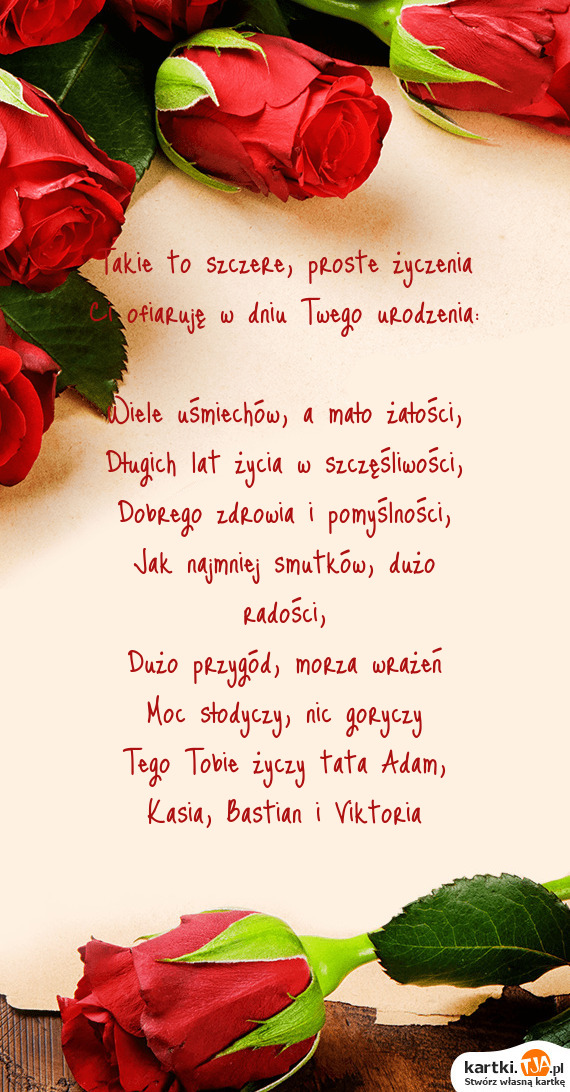 Takie to szczere, proste życzenia
Ci ofiaruję w dniu Twego urodzenia:
Wiele uśmiechów, a mało żałości,
Długich lat życia w szczęśliwości,
Dobrego zdrowia i pomyślności,
Jak najmniej smutków, dużo
radości,
Dużo przygód, morza wrażeń
Moc słodyczy, nic goryczy
Tego Tobie życzy tata Adam,
Kasia, Bastian i Viktoria
kartki.TJA.pl
Stwórz własną kartkę